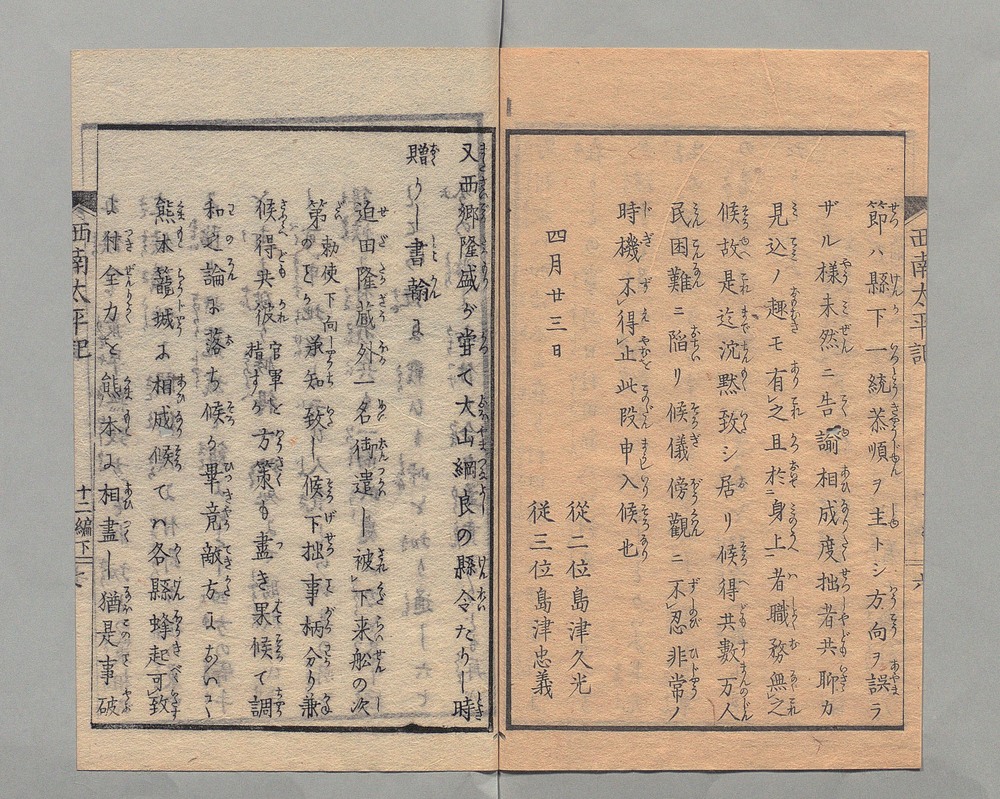 節ハ縣下一統恭順ヲ主トシ方向ヲ誤ラ
ザル様未然ニ告諭相成度拙者共聊カ
見込ノ趣モ有之且於身上者職務無之
候故是迄沈黙致シ居リ候得共數万人
民困難ニ陥リ候儀傍觀ニ不忍非常ノ
時機不得止此段申入候也
四月廿三日
従二位島津久光
従三位島津忠義
西南太平記
六
又西郷隆盛が甞て大山綱良の縣令たりし時
贈りし書翰
迫田隆蔵外一名御遣し被下来舩の次
第のこらず承知致し候下拙事柄分り兼
勅使下向
候得共彼
官軍を
措すか方策も盡き果候て調
和之論に落ち候か畢竟敵方において
熊本籠城に相成候てハ各縣蜂起可致
に付全力を熊本に相盡し猶是事破
西南太平記
十二編下
七